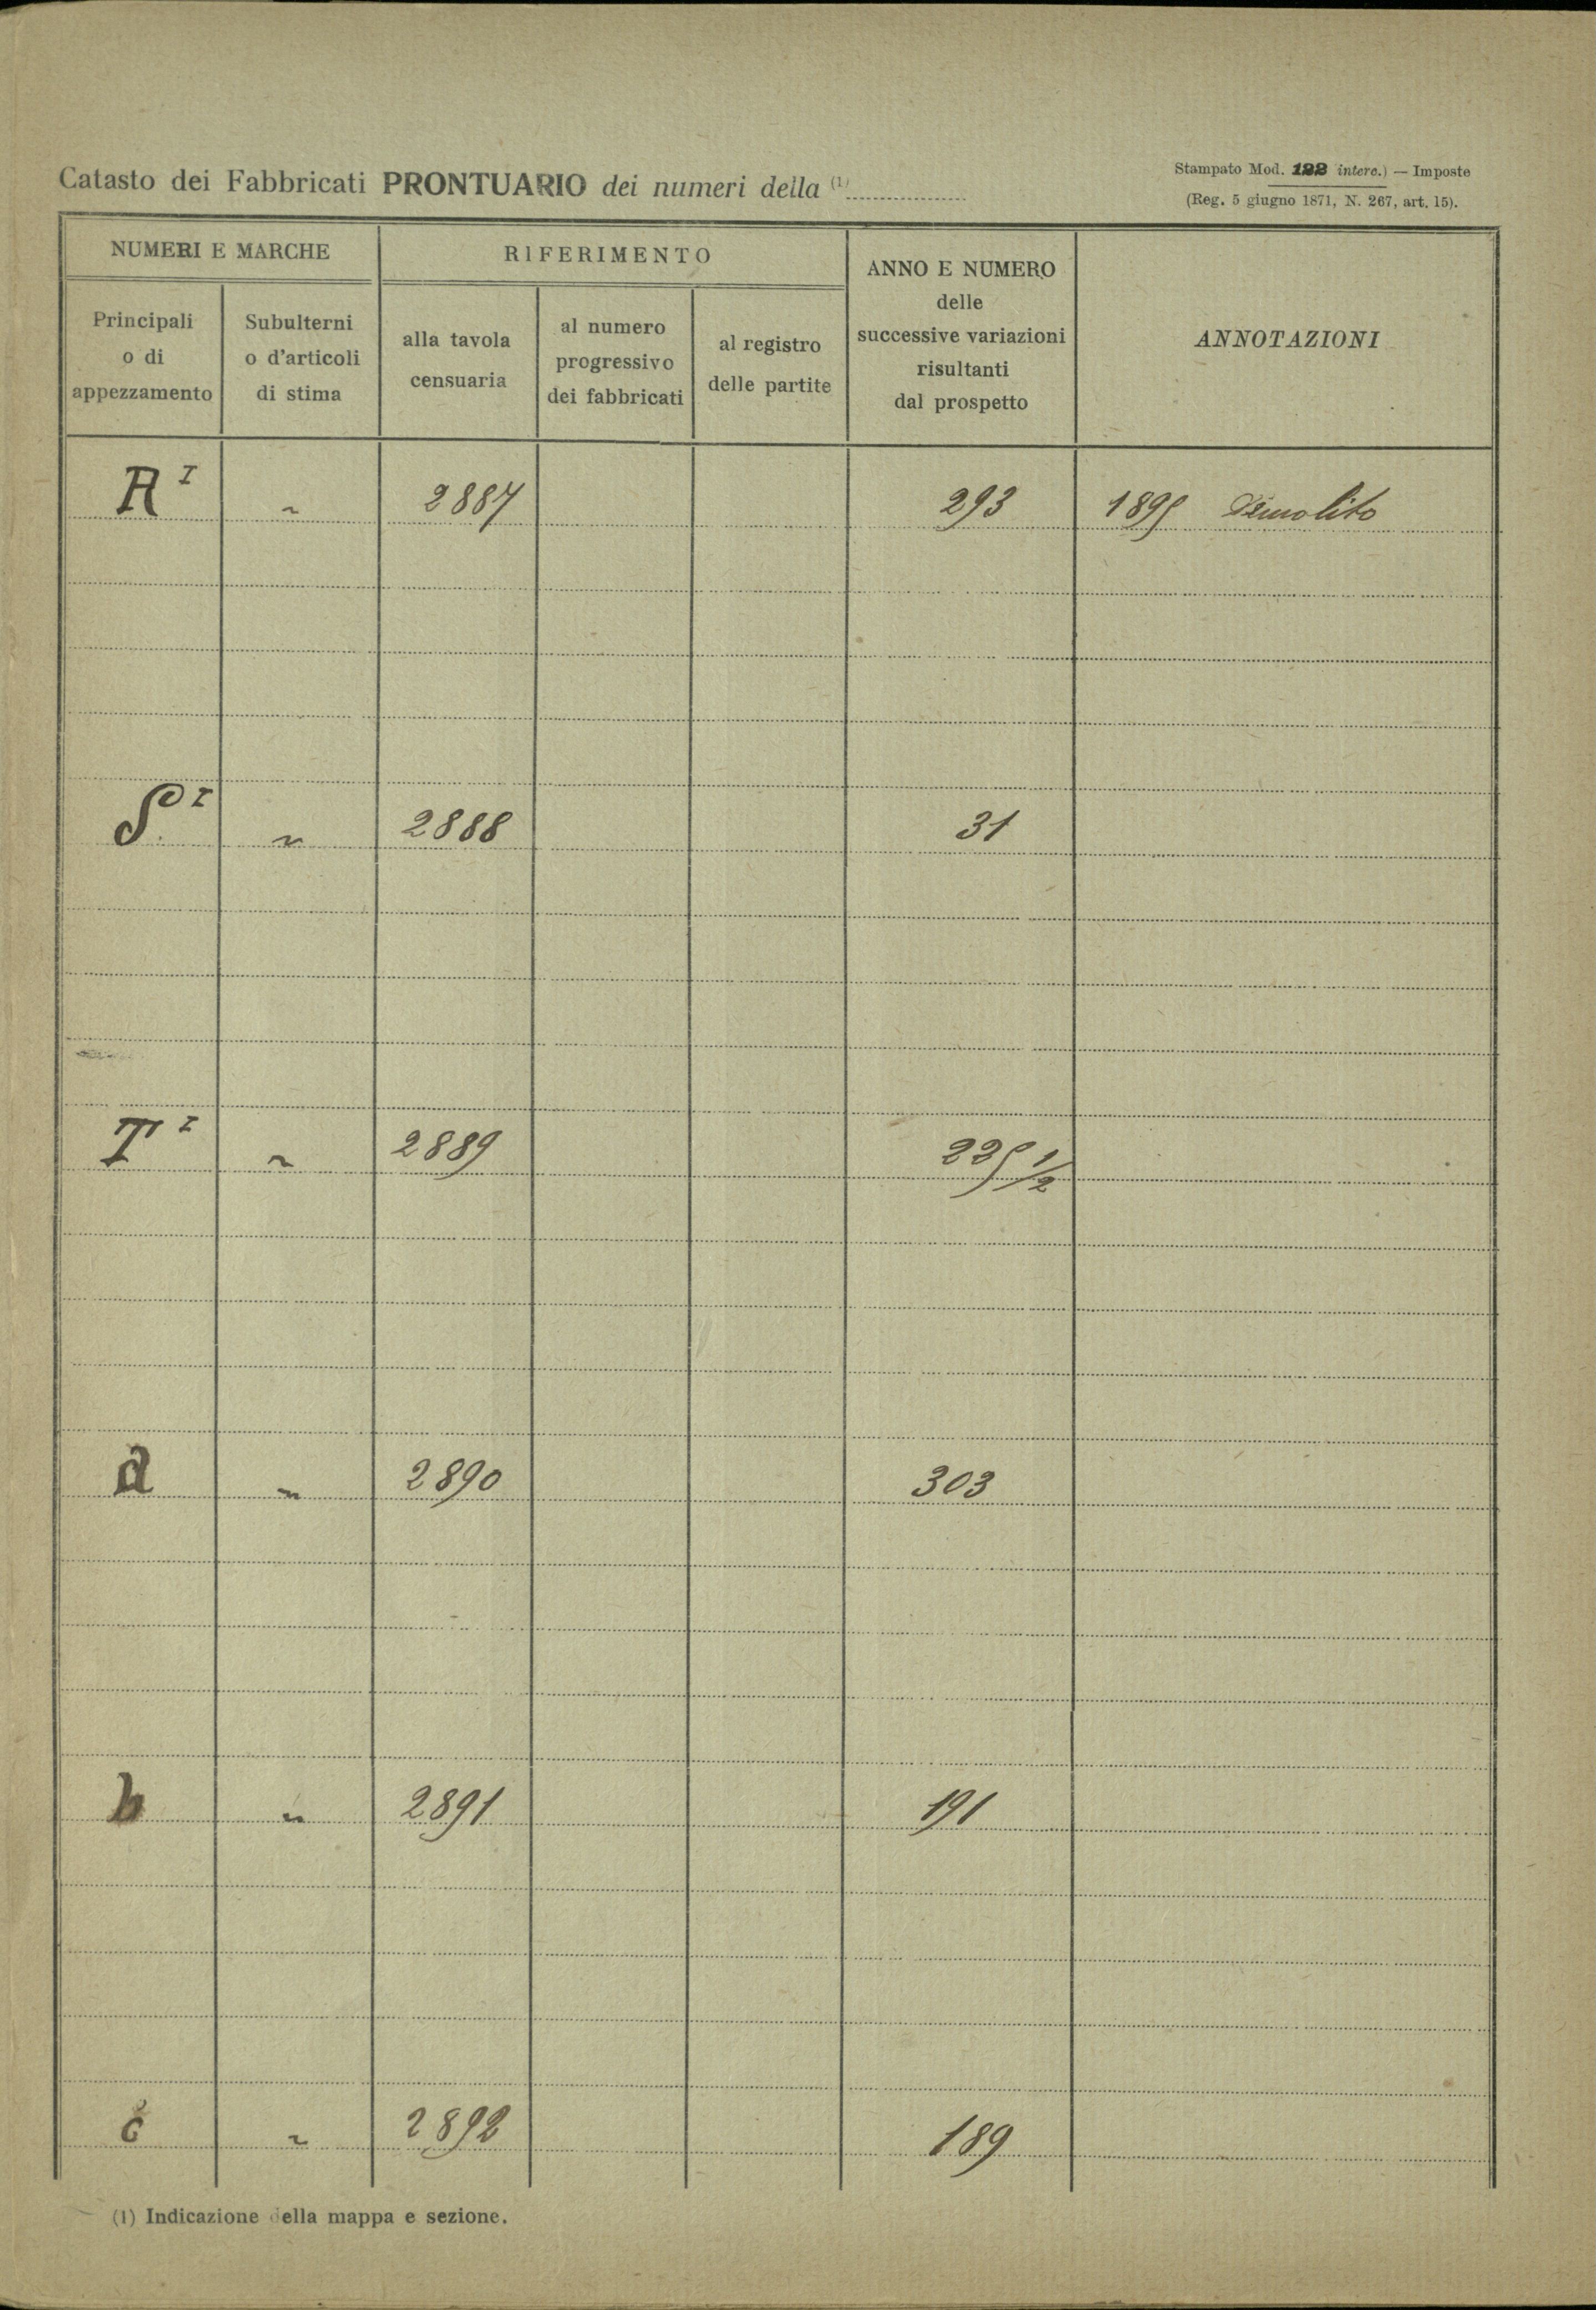 Catasto dei Fabbricati PRONTUARIO dei numeri della (1)
Stampato Mod. 122 interc.) — Imposte
(Reg. 5 giugno 1871, N. 267, art. 15).
NUMERI E MARCHE
RIFERIMENTO
ANNO E NUMERO
delle
successive variazioni
risultanti
dal prospetto
ANNOTAZIONI
Principali
o di
appezzamento
Subulterni
o d'articoli
di stima
alla tavola
censuaria
al numero
progressivo
dei fabbricati
al registro
delle partite
R I " 2887 293 1895 Demolito
S I " 2888 31
T I " 2889 225 1/2
a " 2890 303
b " 2891 191
c " 2892 189
(1) Indicazione della mappa e sezione.